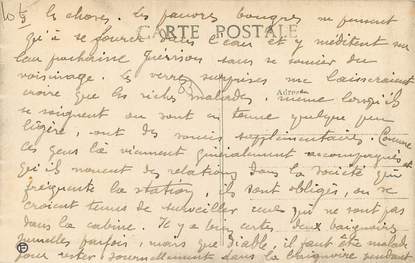 les choses. Les pauvres bougres ne pensent
CARTE POSTALE
qu'à se fourrer dans l'eau et y méditent sur
leur prochaine guérison sans se soucier du
voisinage. Le verres surprises me laisseraient
Adresse
croire que les riches malades, même lorsqu'ils
se soignent ou sont en tenue quelque peu
légère, ont des soucis supplémentaires. Comme
ces gens là viennent généralement accompagnés et
qu'ils nouent des relations dans la société qui
fréquente la station, ils sont obligés, ou se
croient tenus de surveiller ceux qui ne sont pas
dans la cabine. Il y a bien certes deux baignoires
jumelles parfois, mais que diable, il faut être malade
pour rester journellement dans la baignoire pendant